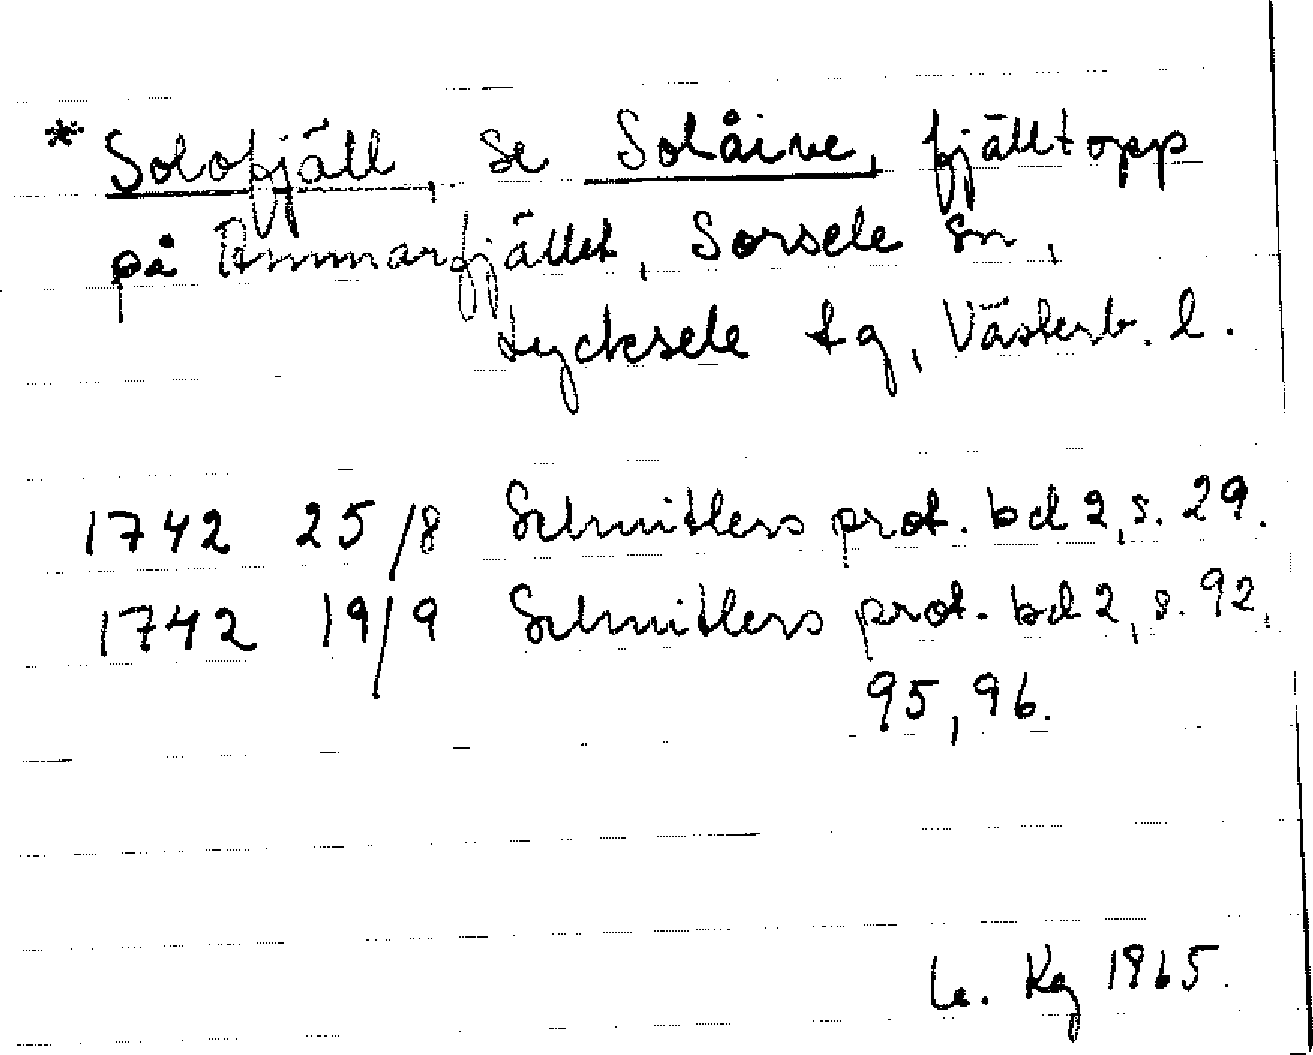 * Solofjäll, se Solåive, fjälltopp
på Ammarfjället, Sorsele sn,
Lycksele lg, Västerb. l.
1742 25/8 Schnitlers prot. bd 2, s. 29.
1742 19/9 Schnitlers prot. bd 2, s. 92,
95, 96.
Kg 1965.